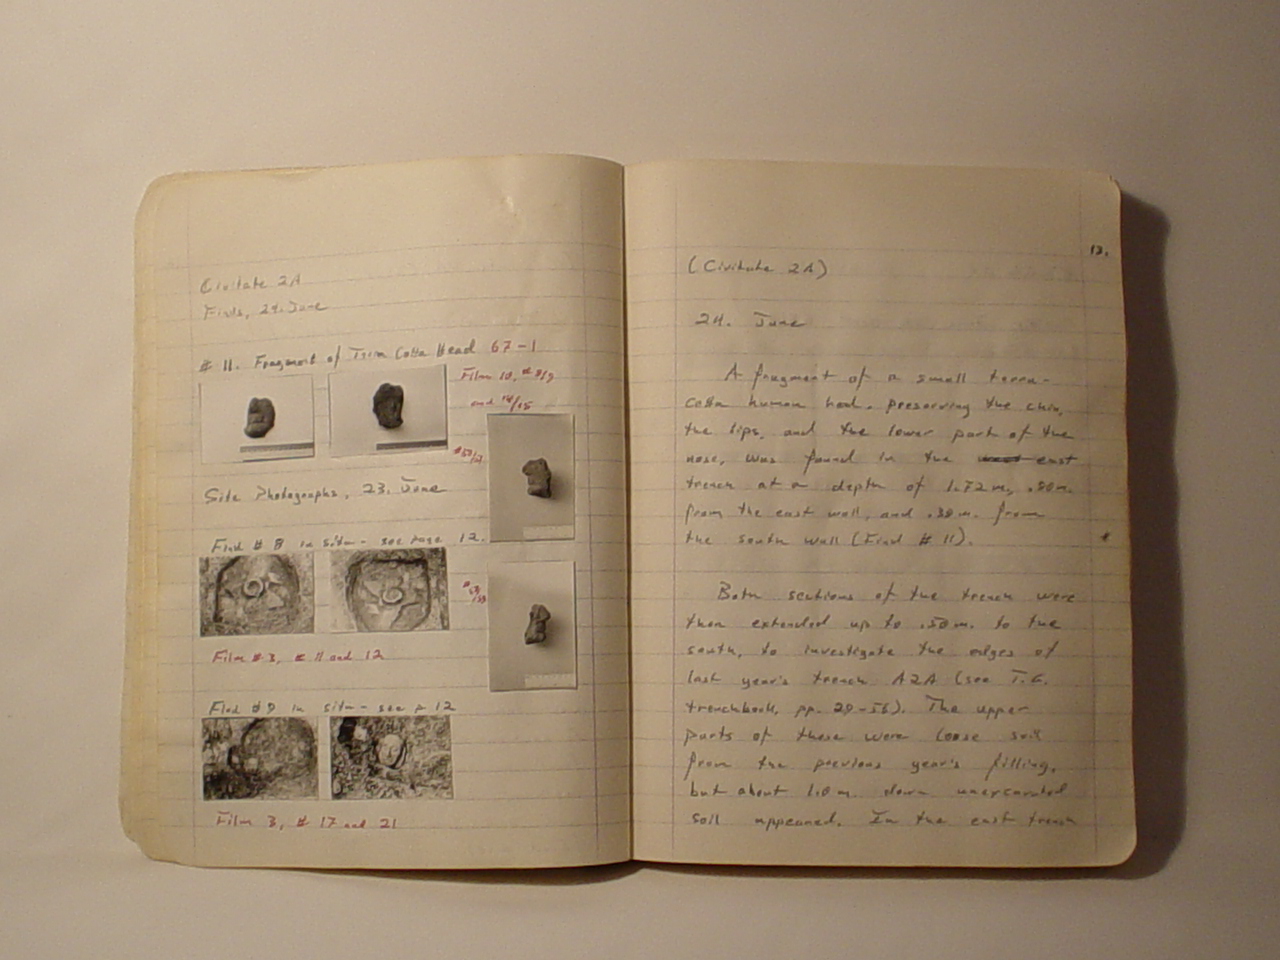 Civitate 2A
Finds, 24. June
# 11. Fragment of Terra Cotta Head 67-1
Film 10,
and 14/15
Site Photographs, 23. June
Find # 8 in situ - see page 12.
Film # 3, # 11 and 12
Find # 9 in situ - see p 12
Film 3, # 17 and 21
13.
(Civitate 2A)
24. June
A fragment of a small terra-
cotta human head, preserving the chin,
the lips, and the lower part of the
nose, was found in the east
trench at a depth of 1.72 m, .80 m.
from the east wall, and .30 m. from
the south wall (Find # 11). *
Both sections of the trench were
then extended up to .50 m. to the
south, to investigate the edges of
last year's trench A2A (see T.G.
trenchbook, pp. 29-56). The upper
parts of these were loose soil
from the previous year's filling,
but about 1.0 m. down unexcavated
soil appeared. In the east trench